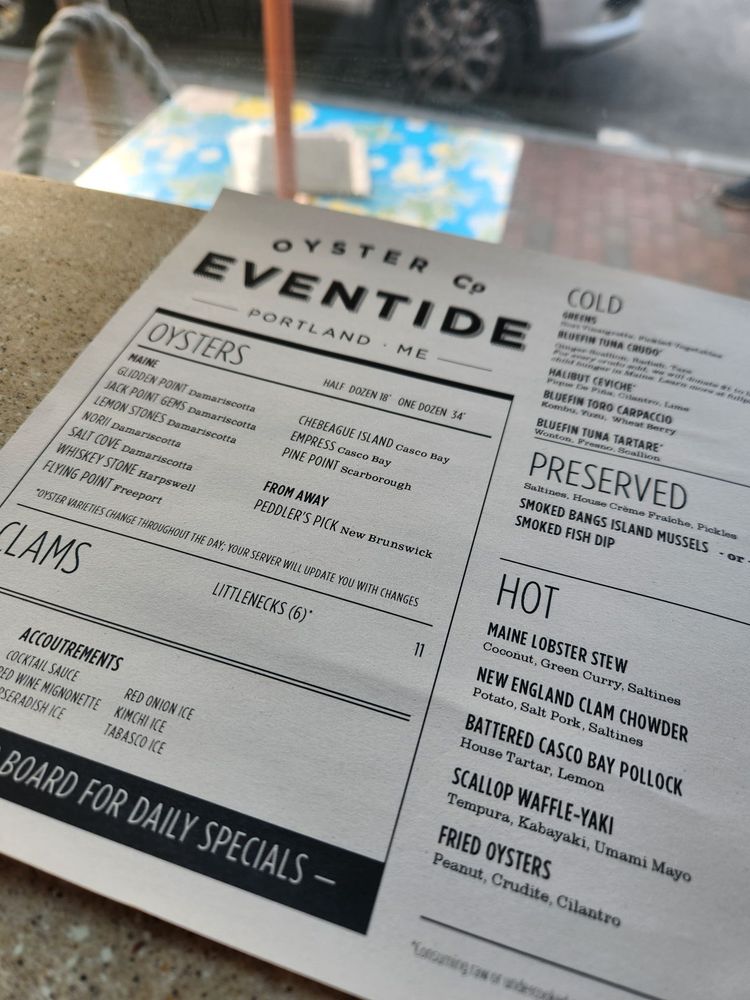 OYSTER Co
EVENTIDE
PORTLAND · ME
OYSTERS
HALF DOZEN 18* ONE DOZEN 34*
MAINE
GLIDDEN POINT Damariscotta
JACK POINT GEMS Damariscotta
LEMON STONES Damariscotta
NORII Damariscotta
SALT COVE Damariscotta
WHISKEY STONE Harpswell
FLYING POINT Freeport
CHEBEAGUE ISLAND Casco Bay
EMPRESS Casco Bay
PINE POINT Scarborough
FROM AWAY
PEDDLER'S PICK New Brunswick
*OYSTER VARIETIES CHANGE THROUGHOUT THE DAY; YOUR SERVER WILL UPDATE YOU WITH CHANGES
CLAMS
LITTLENECKS (6)*
11
ACCOUTREMENTS
COCKTAIL SAUCE
RED WINE MIGNONETTE
RSERADISH ICE
RED ONION ICE
KIMCHI ICE
TABASCO ICE
BOARD FOR DAILY SPECIALS –
COLD
GREENS
Nori Vinaigrette, Pickled Vegetables
BLUEFIN TUNA CRUDO*
Ginger Scallion, Radish, Tare
For every crudo sold, we will donate $1 to
child hunger in Maine. Learn more at
HALIBUT CEVICHE*
Pique De Piña, Cilantro, Lime
BLUEFIN TORO CARPACCIO
Kombu, Yuzu, Wheat Berry
BLUEFIN TUNA TARTARE*
Wonton, Fresno, Scallion
PRESERVED
Saltines, House Crème Fraîche, Pickles
SMOKED BANGS ISLAND MUSSELS - or -
SMOKED FISH DIP
HOT
MAINE LOBSTER STEW
Coconut, Green Curry, Saltines
NEW ENGLAND CLAM CHOWDER
Potato, Salt Pork, Saltines
BATTERED CASCO BAY POLLOCK
House Tartar, Lemon
SCALLOP WAFFLE-YAKI
Tempura, Kabayaki, Umami Mayo
FRIED OYSTERS
Peanut, Crudite, Cilantro
*Consuming raw or undercooked